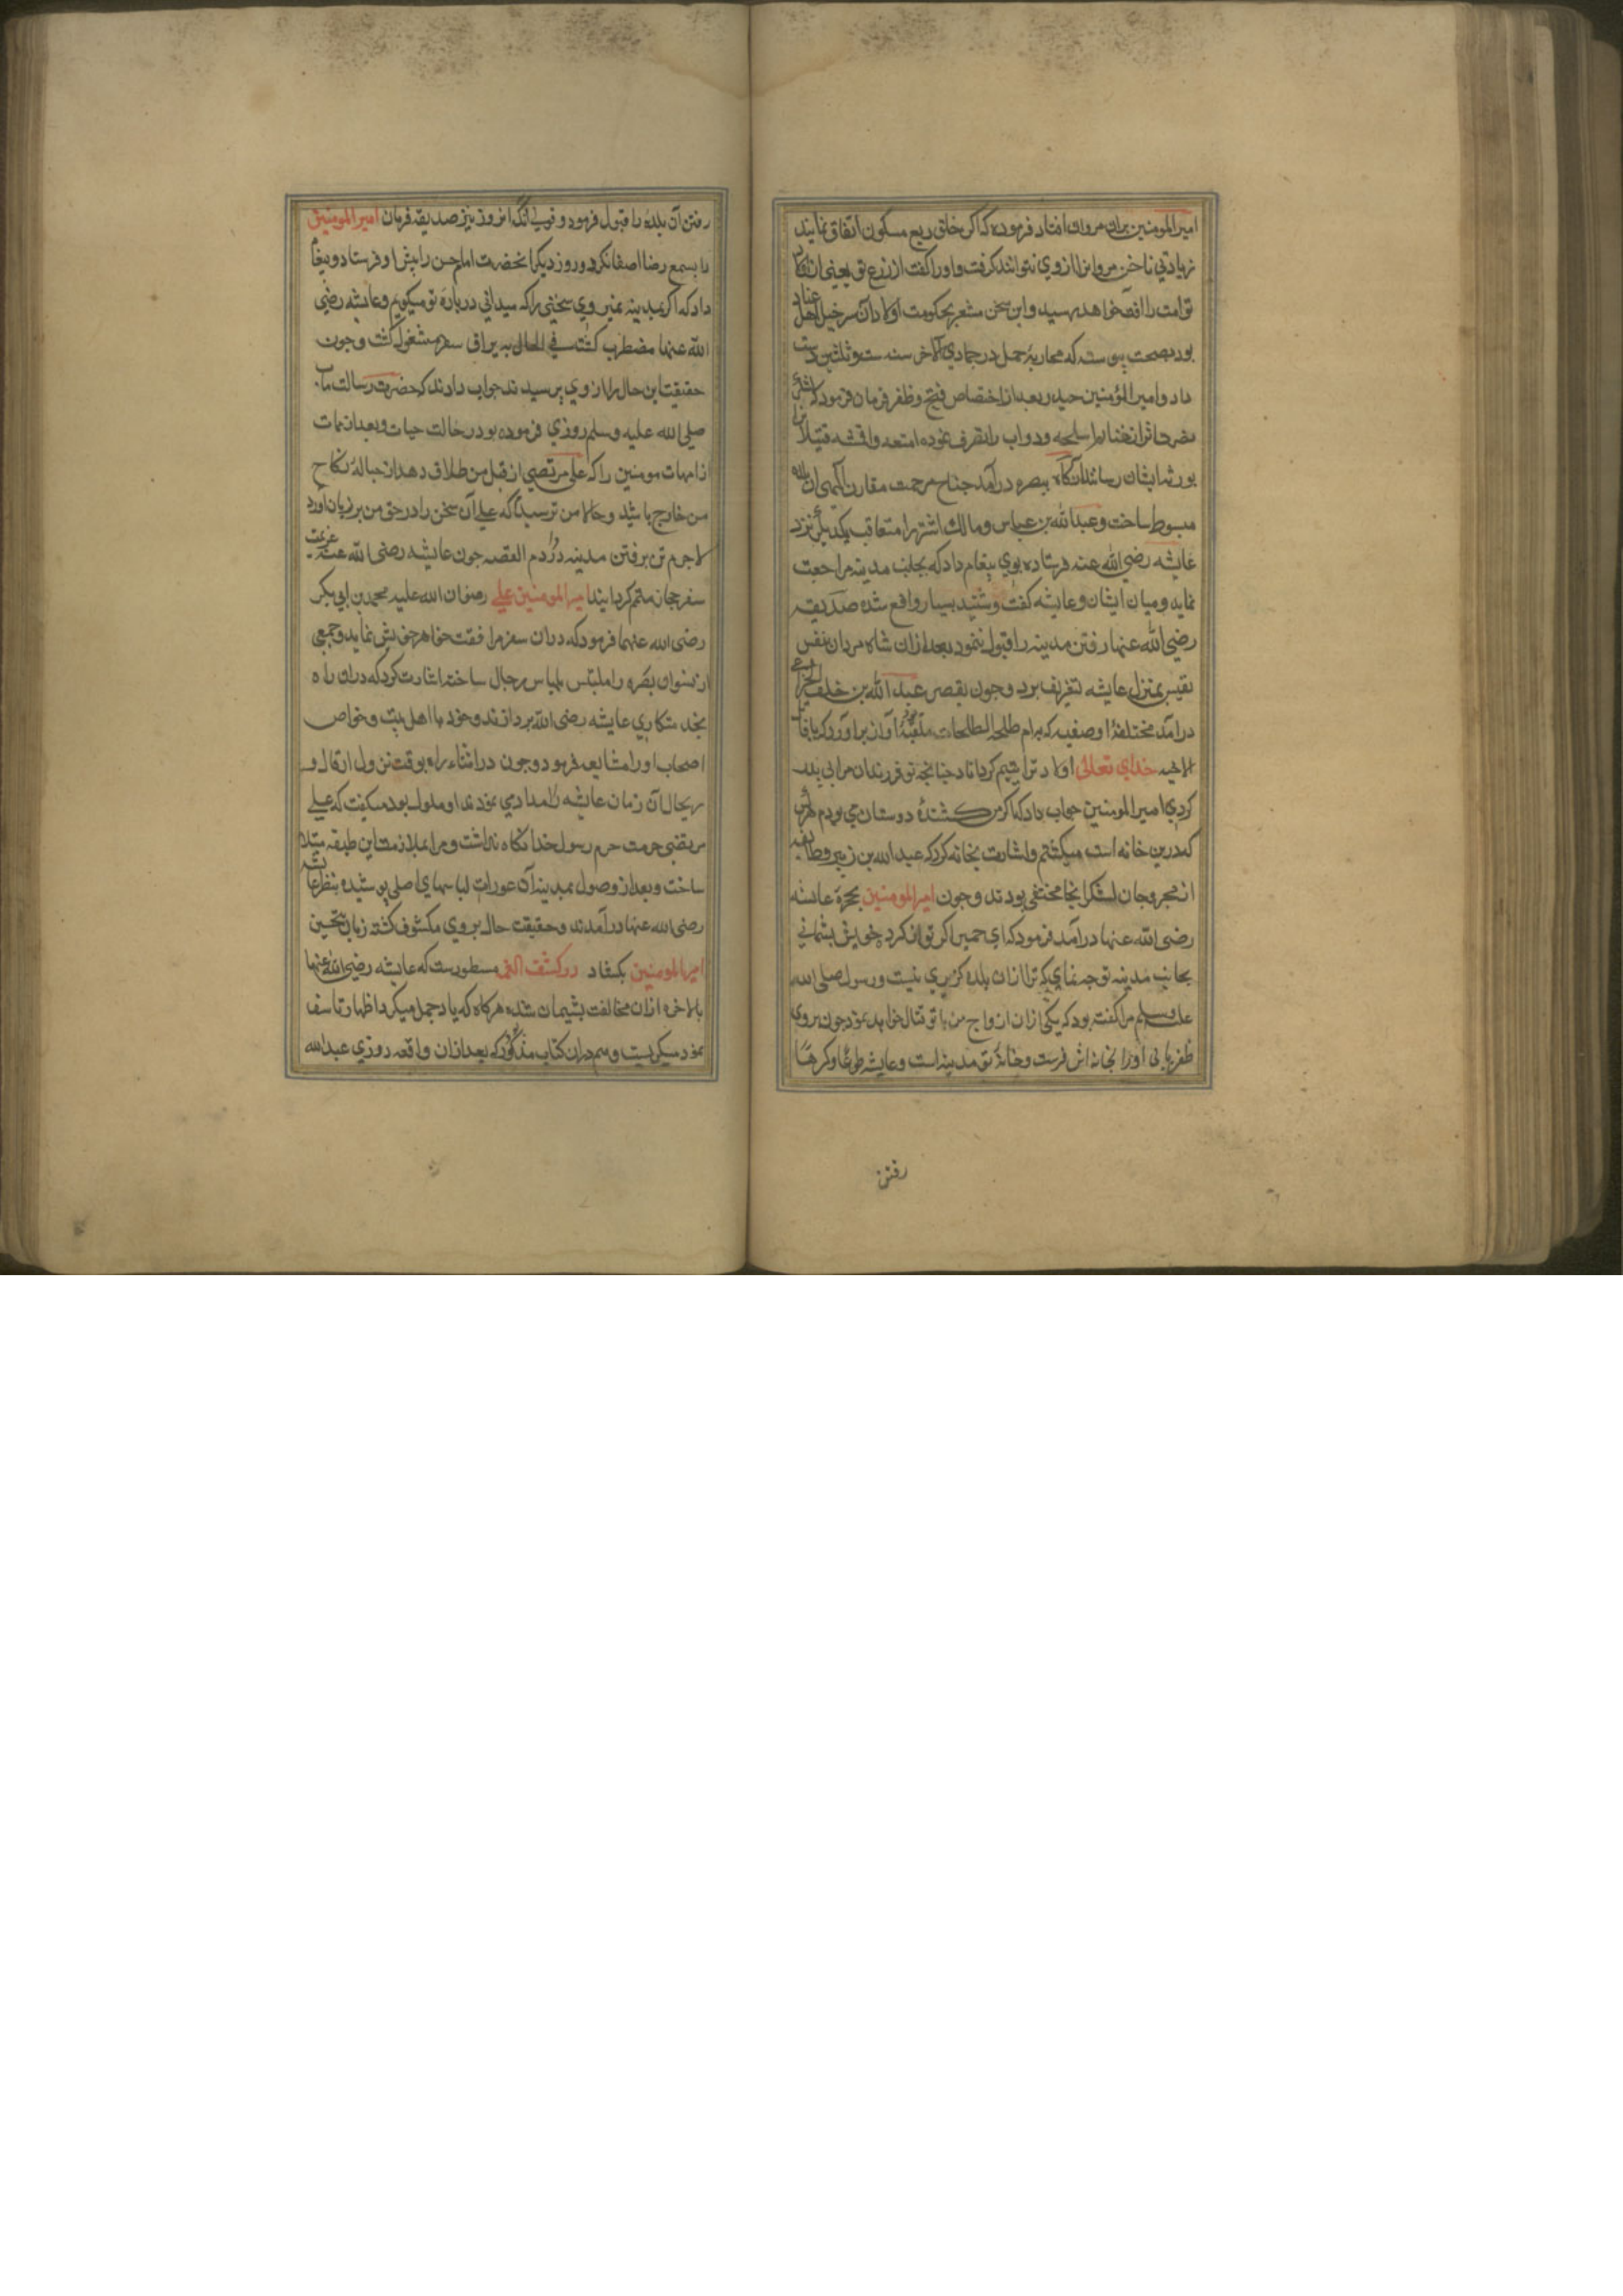 امیرالمومنین بران مروان افتاد فرموده که اکر خلق ربع مسکون اتفاق نمایند
زیادتی ناخن مروانرا ازوی نتوانند کرفت واورا کفت از زرع تو یعنی
توامت را خواهد رسید واین سخن مشعر بحکومت اولادآن سرخیل اهل عناد
بود بصحت پیوسته که محاربهٔ جمل در جمادی الاخر سنه ست وثلثین دست
داد وامیرالمؤمنین حیدر بعد از اختصاص فتح وظفر فرمان فرمود که
اسلحه ودواب را تصرف نموده امتعه واقشه قتیلانرا
بورثه ایشان رسانند آنکاه ببصره درآمد جناح مرحمت مقارن
مبسوط ساخت وعبدالله بن عباس ومالک اشتر را متعاقب یکدیکر نزد
عایشه رضی الله عنه فرستاده بوی پیغام داد که بجانب مدینه مراجعت
نماید ومیان ایشان وعایشه کفت وشنید بسیار واقع شده صدیقه
رضی الله عنها رفتن مدینه را قبول ننمود بعد ازان شاه مردان بنفس
نفیس بمنزل عایشه تشریف برد وجون بقصر عبدالله بن خلف الخزاعی
درآمد مختلفهٔ اوصفیه که بام طلحه الطلحات ملقبه بود آواز برآورد که یا قاتل
الاحبه خدای تعالی اولاد ترا یتیم کرداناد جنانجه تو فرزندان مرا بی پدر
کردی امیرالمومنین جواب داد که اکر من کشندهٔ دوستان می بودم هرکس
که درین خانه است میکشتم واشارت بخانه کرد که عبدالله بن زبیر وطایفه
از مجروحان لشکر انجا مختفی بودند وجون امیرالمومنین بحجرهٔ عایشه
رضی الله عنها درآمد فرمود که ای حمیرا اکر توان کرد خویش پشیمانی
بجانب مدینه توجه نمای که ترا ازان بلده کزیری نیست ورسول صلی الله
علیه وسلم مرا کفته بود که یکی ازان ازواج من با تو قتال خواهد نمود جون بروی
ظفر یابی اورا بخانه اش فرست وخانهٔ تو مدینه است وعایشه طوعا وکرها
رفتن
رفتن آن بلده را قبول فرمود و انروز نیز صدیقه فرمان امیرالمومنین
را بسمع رضا اصغا نکرد وروز دیکر انحضرت امام حسن را پیش او فرستاد وپیغام
داد که اکر بمدینه نمیروی سخنی را که میدانی دربارهٔ تو میکویم وعایشه رضی
الله عنها مضطرب کشته فی الحال به یراق سفر مشغول کشت وجون
حقیقت این حال را ازوی پرسیدند جواب داد که حضرت رسالت ماب
صلی الله علیه وسلم روزی فرموده بود در حالت حیات وبعد از ممات
از امهات مومنین را که علی مرتضی از قبل من طلاق دهد از حبالهٔ نکاح
من خارج باشد وحالا من ترسیدم که علی آن سخن را در حق من بر زبان آورد
لاجرم تن برفتن مدینه در دادم القصه جون عایشه رضی الله عنها عزیمت
سفر حجاز مصمم کردانید امیرالمومنین علی رضوان الله علیه محمد بن ابی بکر
رضی الله عنهما فرمود که دران سفر مرافقت خواهر خویش نماید وجمعی
از نسوان بصره را ملبس بلباس رجال ساخته اشارت کرد که دران راه
بخدمتکاری عایشه رضی الله پردازند وخود با اهل بیت وخواص
اصحاب اورا مشایعه فرمود وجون در اثناء راه بوقت نزول ارتحال و
آن زمان عایشه را مدد می نمودند او ملول بود میکفت که علی
مرتضی حرمت حرم رسول خدا نکاه نداشت ومرا بملازمت این طبقه مبتلا
ساخت وبعد از وصول بمدینه آن عورات لباسهای اصلی پوشیده بنظر عایشه
رضی الله عنها درآمدند وحقیقت حال بروی مکشوف کشته زبان تحسین
امیرالمومنین بکشاد در کشف الغمه مسطورست که عایشه رضی الله عنها
بالاخره ازان مخالفت پشیمان شده هرکاه که یاد جمل میکرد اظهار تاسف
نمود میکریست وهم دران کتاب مذکور که بعد ازان واقعه روزی عبدالله